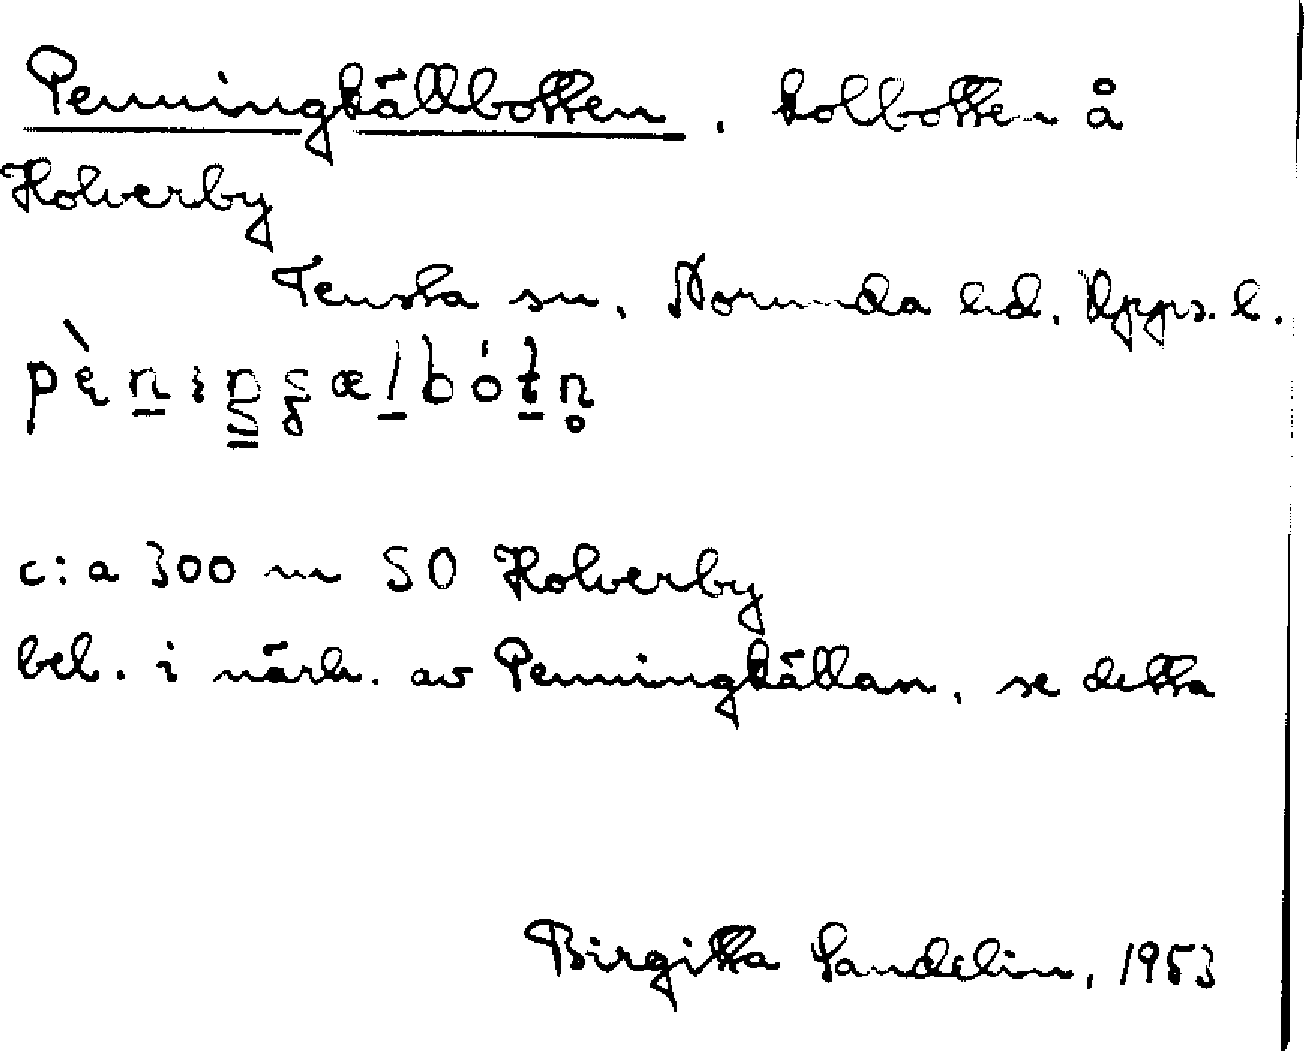 Penningkällbotten, kolbotten å
Holverby
Tensta sn, Norunda hd. Upps. l.
c:a 300 m SO Holverby
bel. i närh. av Penningkällan, se detta
Birgitta Sandelin, 1953